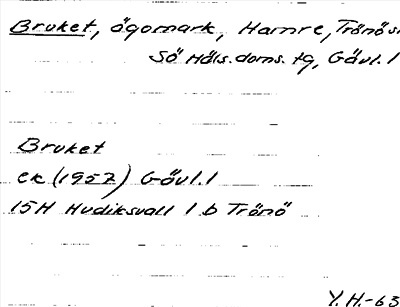 Bruket, ägomark, Hamre, Trönö s
Sö Häls. doms. tg, Gävl. l
Bruket
ek (1957) Gävl. l
15H Hudiksvall 1 b Trönö
Y. H.-63